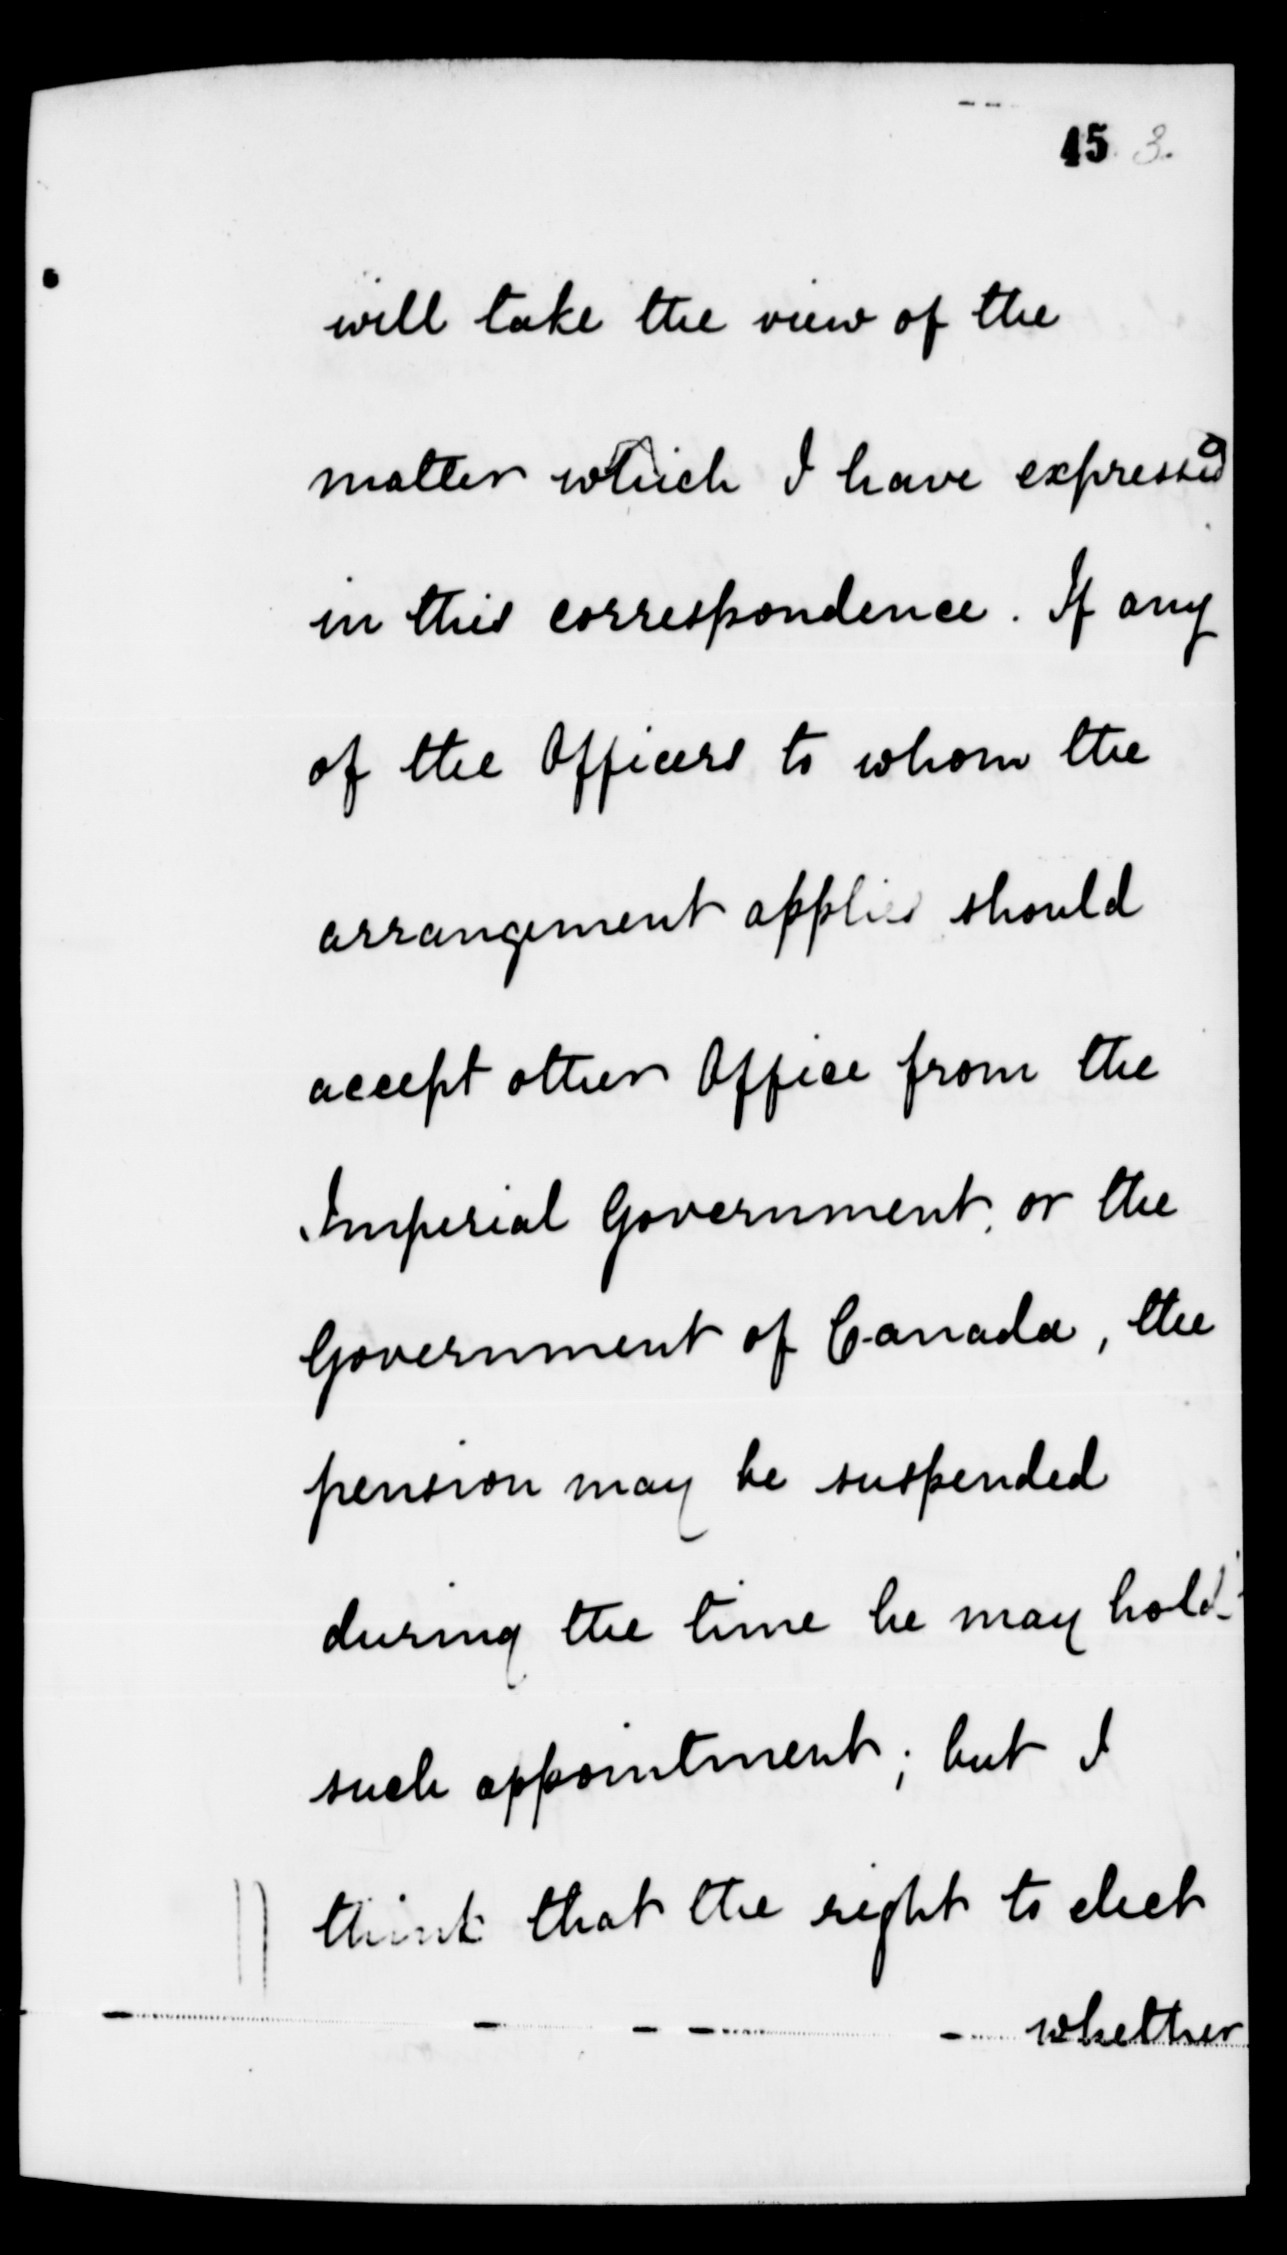 45 3.
will take the view of the
matter which I have expressed
in this correspondence. If any
of the Officers to whom the
arrangement applies should
accept other Office from the
Imperial Government or the
Government of Canada, the
pension may be suspended
during the time he may hold
such appointment; but I
think that the right to elect
whether